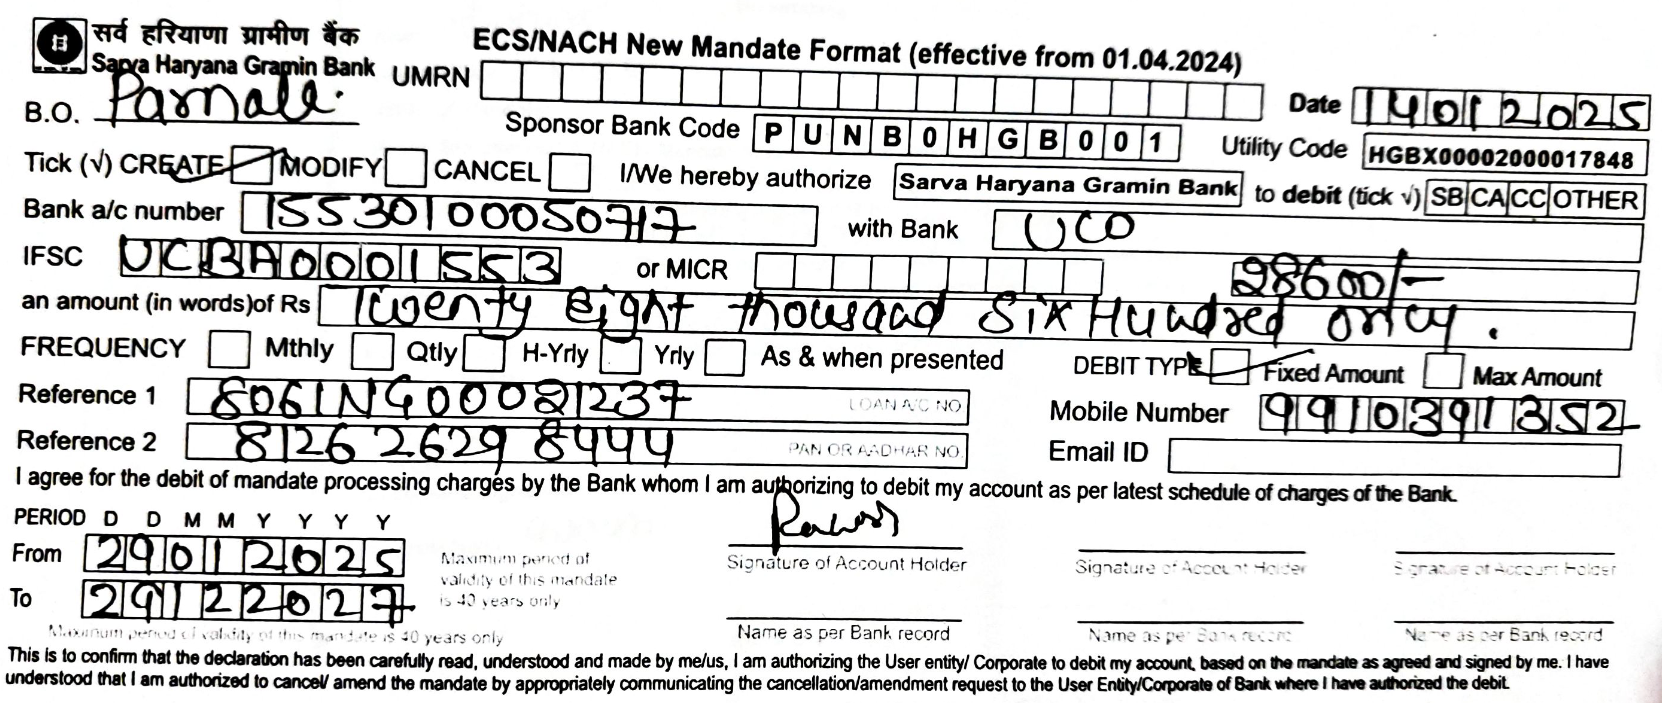 सर्व हरियाणा ग्रामीण बैंक
Sarva Haryana Gramin Bank
ECS/NACH New Mandate Format (effective from 01.04.2024)
UMRN
Date 14012025
B.O. Parnala
Sponsor Bank Code PUNB0HGB001 Utility Code HGBX00002000017848
Tick (√) CREATE MODIFY CANCEL I/We hereby authorize Sarva Haryana Gramin Bank to debit (tick √) SB CA CC OTHER
Bank a/c number 15530100050717 with Bank UCO
IFSC UCBA0001553 or MICR 28600/-
an amount (in words)of Rs Twenty eight thousand Six Hundred only.
FREQUENCY Mthly Qtly H-Yrly Yrly As & when presented DEBIT TYPE Fixed Amount Max Amount
Reference 1 8061NG00081237 LOAN A/C NO. Mobile Number 9910391352
Reference 2 8126 2629 8444 PAN OR AADHAR NO. Email ID
I agree for the debit of mandate processing charges by the Bank whom I am authorizing to debit my account as per latest schedule of charges of the Bank.
PERIOD D D M M Y Y Y Y
From 29012025
To 29122027
Maximum period of
validity of this mandate
is 40 years only
Signature of Account Holder Signature of Account Holder Signature of Account Holder
Name as per Bank record Name as per Bank record Name as per Bank record
Maximum period of validity of this mandate is 40 years only
This is to confirm that the declaration has been carefully read, understood and made by me/us, I am authorizing the User entity/ Corporate to debit my account, based on the mandate as agreed and signed by me. I have
understood that I am authorized to cancel/ amend the mandate by appropriately communicating the cancellation/amendment request to the User Entity/Corporate of Bank where I have authorized the debit.